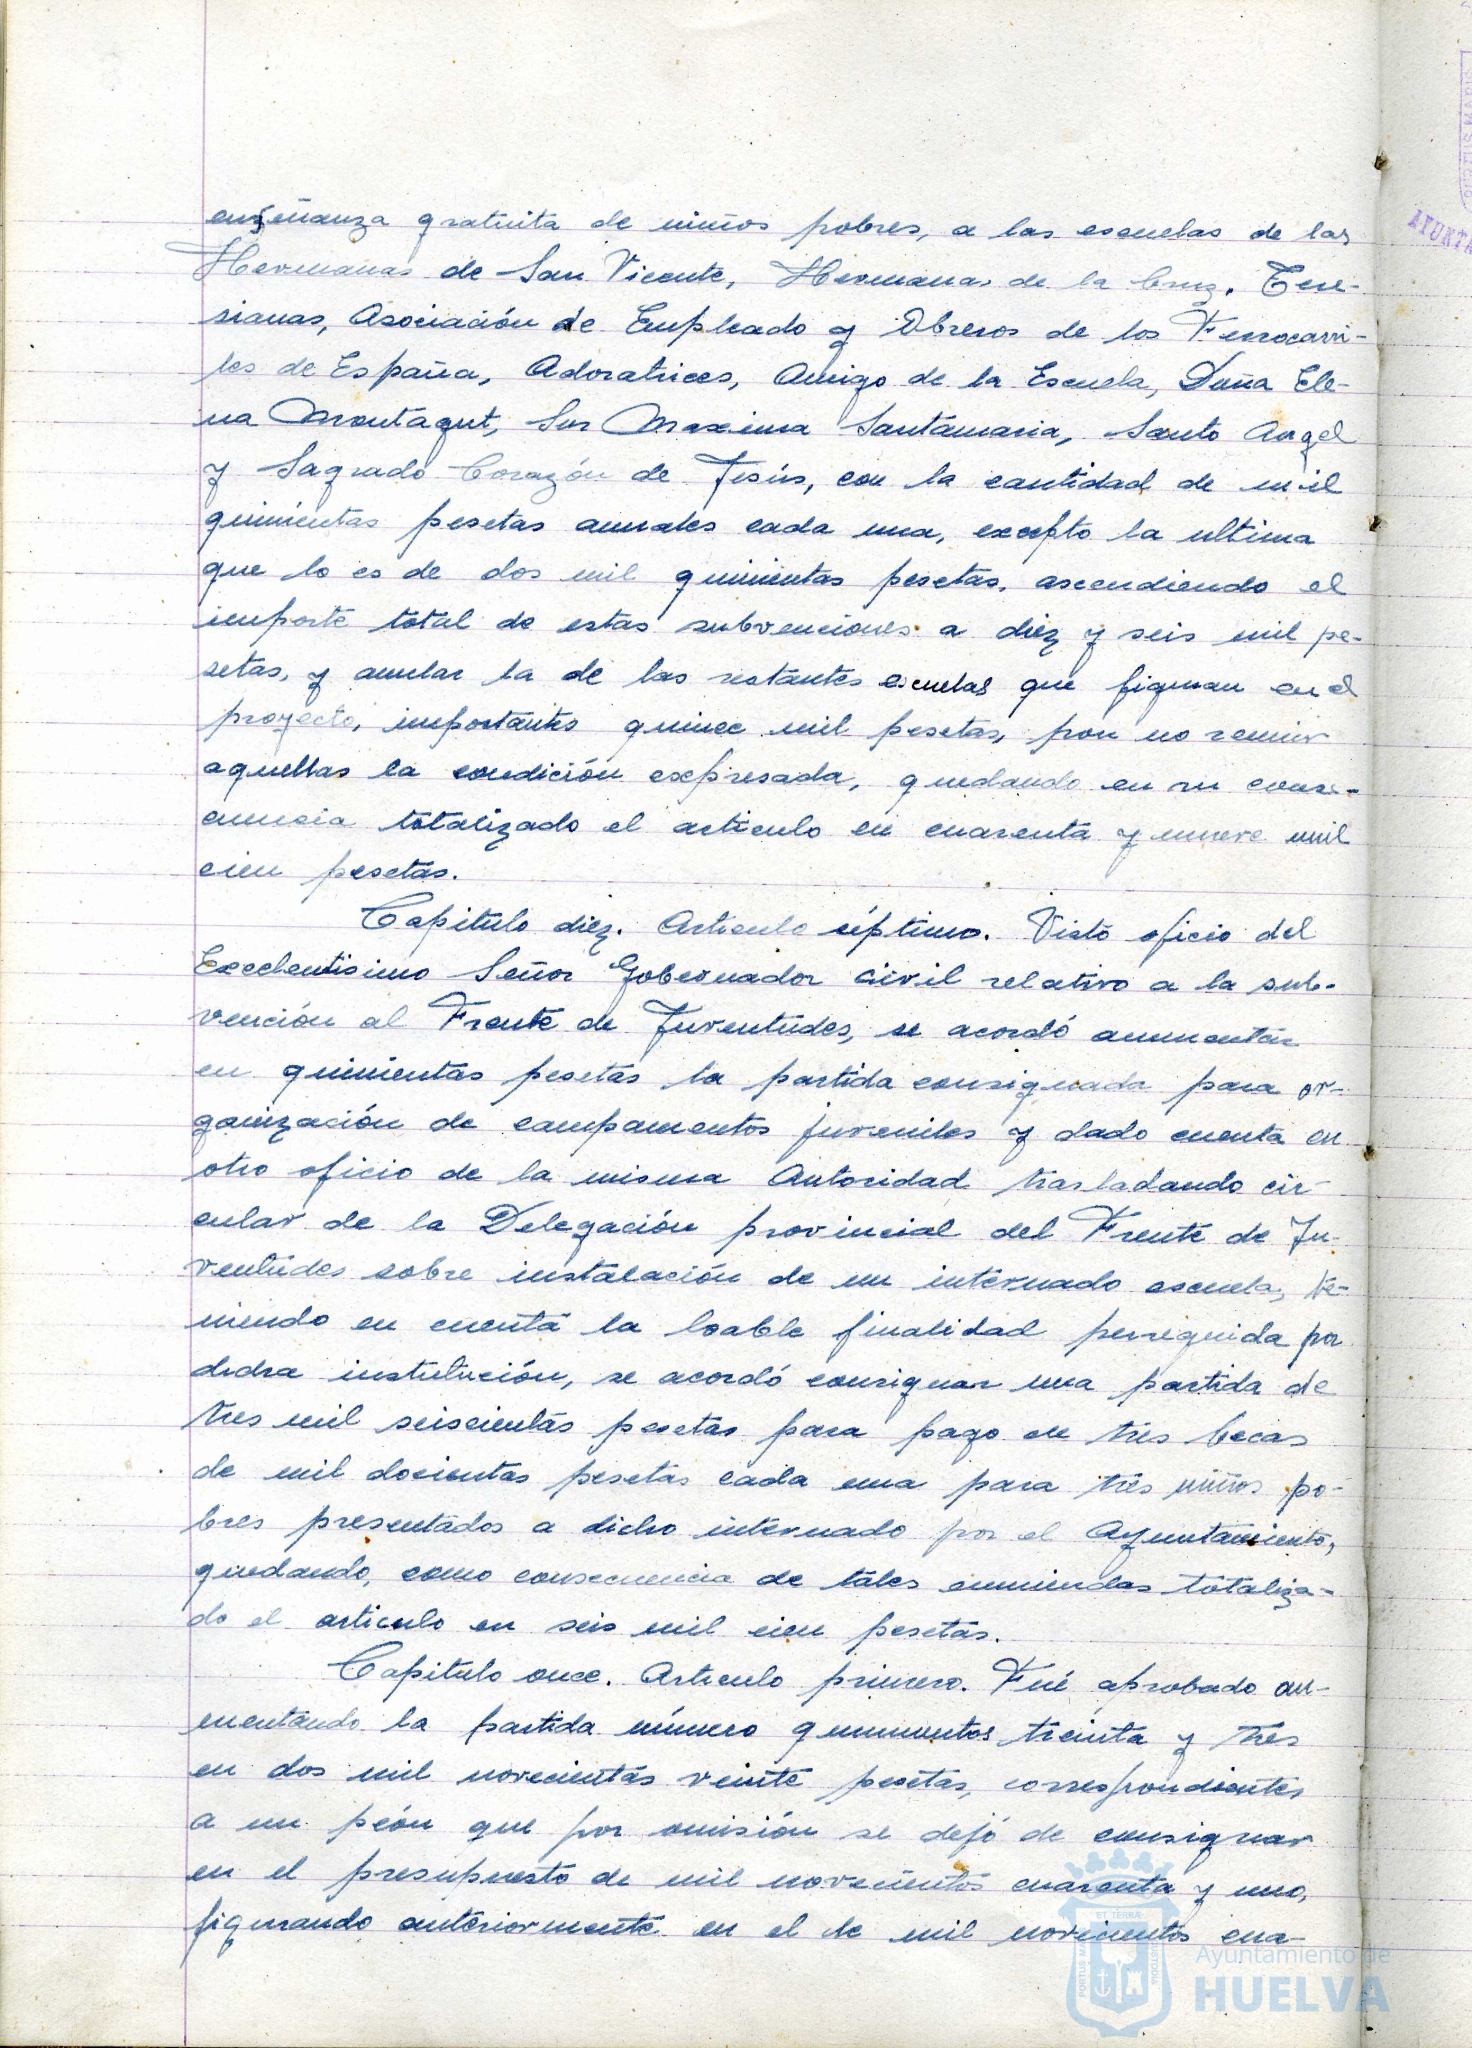 enseñanza gratuita de niños pobres, a las escuelas de las
Hermanas de San Vicente, Hermanas de la Cruz, Tere-
sianas, Asociación de Empleado y Obreros de los Ferrocarri-
les de España, Adoratrices, Amigo de la Escuela, Doña Ele-
na Montagut, Sor Maxima Santamaria, Santo Angel
y Sagrado Corazón de Jesús, con la cantidad de mil
quinientas pesetas anuales cada una, excepto la ultima
que lo es de dos mil quinientas pesetas, ascendiendo el
importe total de estas subvenciones a diez y seis mil pe-
setas, y anular la de las restantes escuelas que figuran en el
proyecto, importantes quince mil pesetas, por no reunir
aquellas la condición expresada, quedando en su conse-
cuencia totalizado el artículo en cuarenta y nueve mil
cien pesetas.
Capitulo diez. Artículo séptimo. Visto oficio del
Excelentisimo Señor Gobernador civil relativo a la sub-
vención al Frente de Juventudes, se acordó aumentar
en quinientas pesetas la partida consignada para or-
ganización de campamentos juveniles y dado cuenta en
otro oficio de la misma Autoridad trasladando cir-
cular de la Delegación provincial del Frente de Ju-
ventudes sobre instalación de un internado escuela, te-
niendo en cuenta la loable finalidad perseguida por
dicha institución, se acordó consignar una partida de
tres mil seiscientas pesetas para pago de tres becas
de mil docientas pesetas cada una para tres niños po-
bres presentados a dicho internado por el Ayuntamiento,
quedando, como consecuencia de tales enmiendas totaliza-
do el artículo en seis mil cien pesetas.
Capitulo once. Artículo primero. Fué aprobado au-
mentando la partida número quinientos treinta y tres
en dos mil novecientas veinte pesetas, correspondientes
a un peón que por omisión se dejó de consignar
en el presupuesto de mil novecientos cuarenta y uno,
figurando anteriormente en el de mil novecientos cua-
Ayuntamiento de
HUELVA